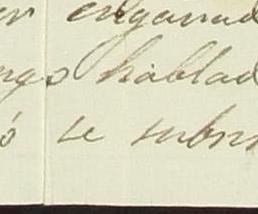 er enganad
ngo hablad
ó se subm